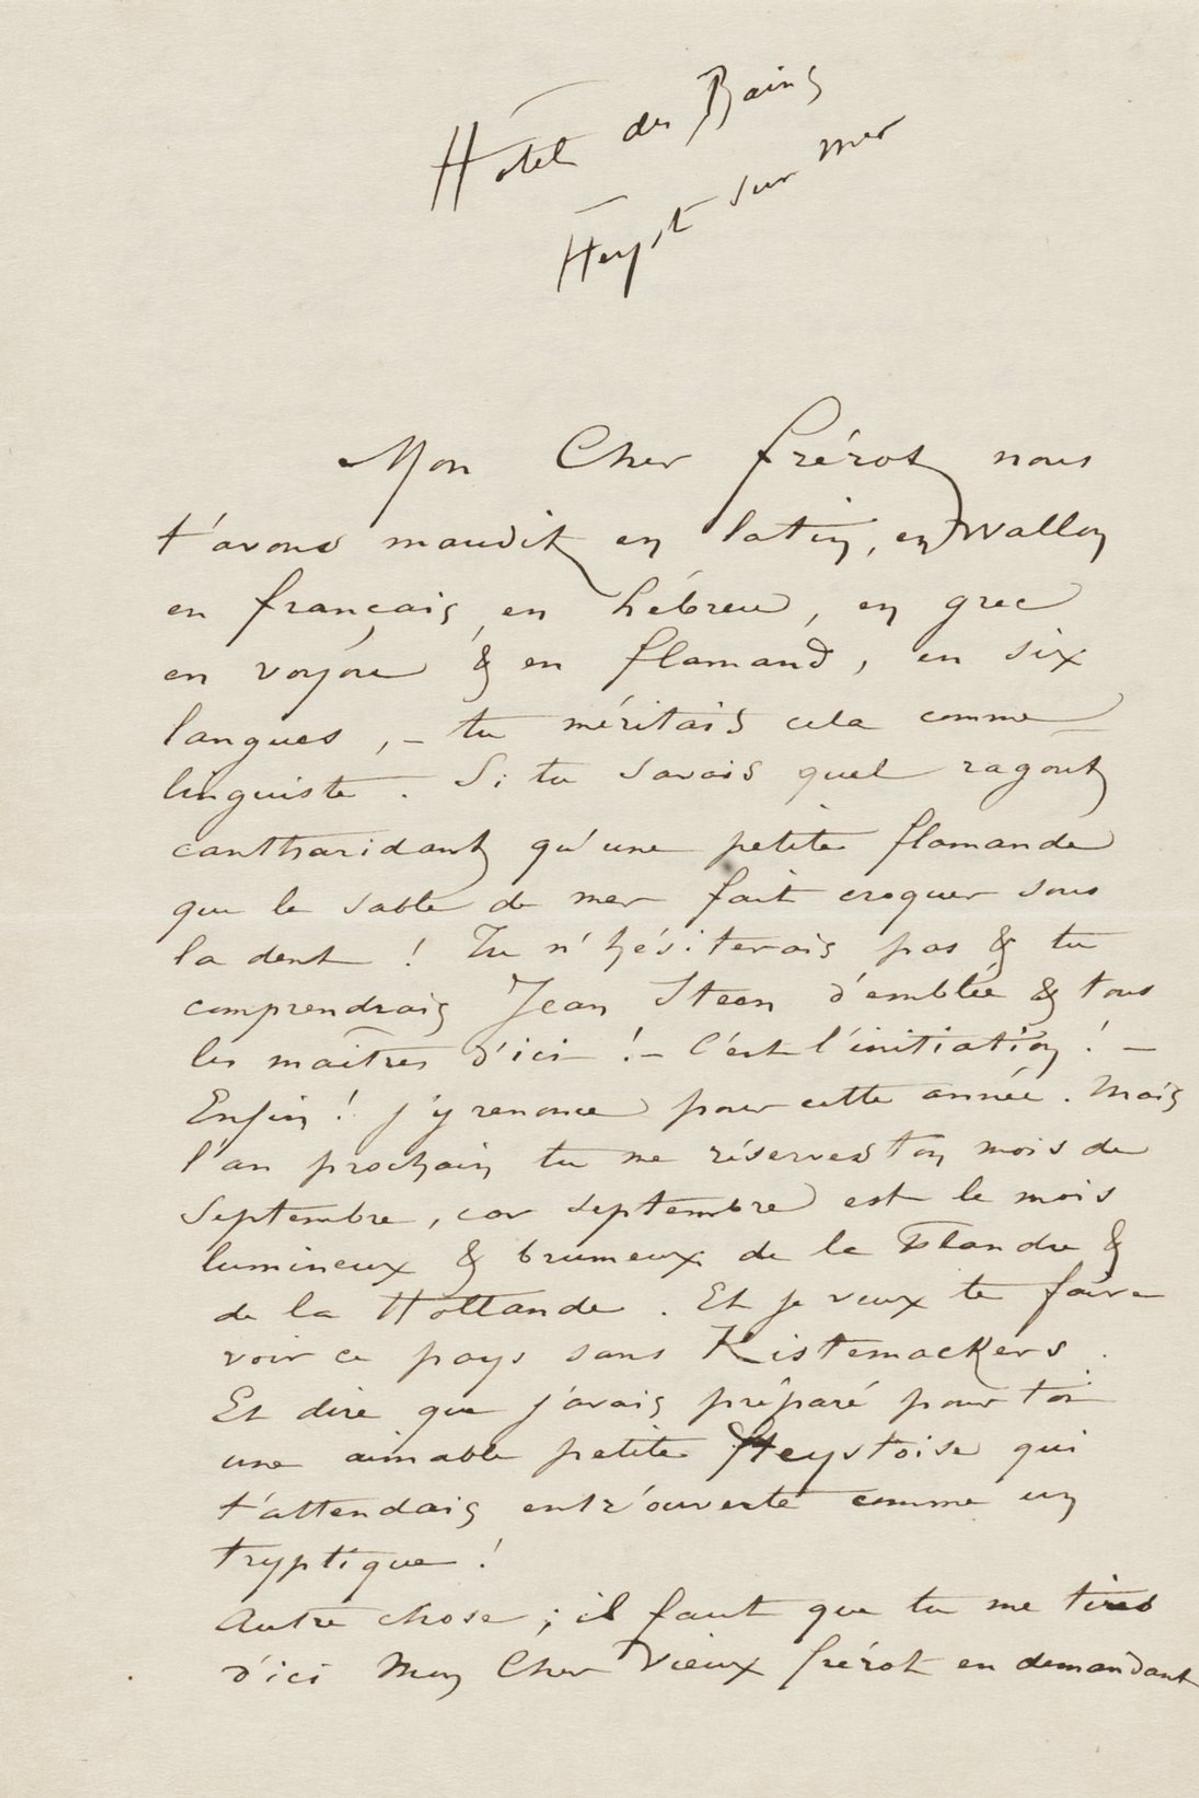 Hôtel des Bains
Heyst sur mer
Mon Cher frérot nous
t'avons maudit en latin, en wallon
en français, en hébreu, en grec
en voyou & en flamand, en six
langues, – tu méritais cela comme
linguiste. Si tu savais quel ragout
cantharidant qu'une petite flamande
que le sable de mer fait croquer sous
la dent ! Tu n'hésiterais pas & tu
comprendrais Jean Steen d'emblée & tous
les maîtres d'ici ! – C'est l'initiation ! –
Enfin ! j'y renonce pour cette année. Mais
l'an prochain tu me réserves ton mois de
Septembre, car septembre est le mois
lumineux & brumeux de la Flandre &
de la Hollande. Et je veux te faire
voir ce pays sans Kistemackers.
Et dire que j'avais préparé pour toi
une aimable petite Heystoise qui
t'attendais entr'ouverte comme un
tryptique !
Autre chose ; il faut que tu me tires
d'ici Mon Cher Vieux frérot en demandant